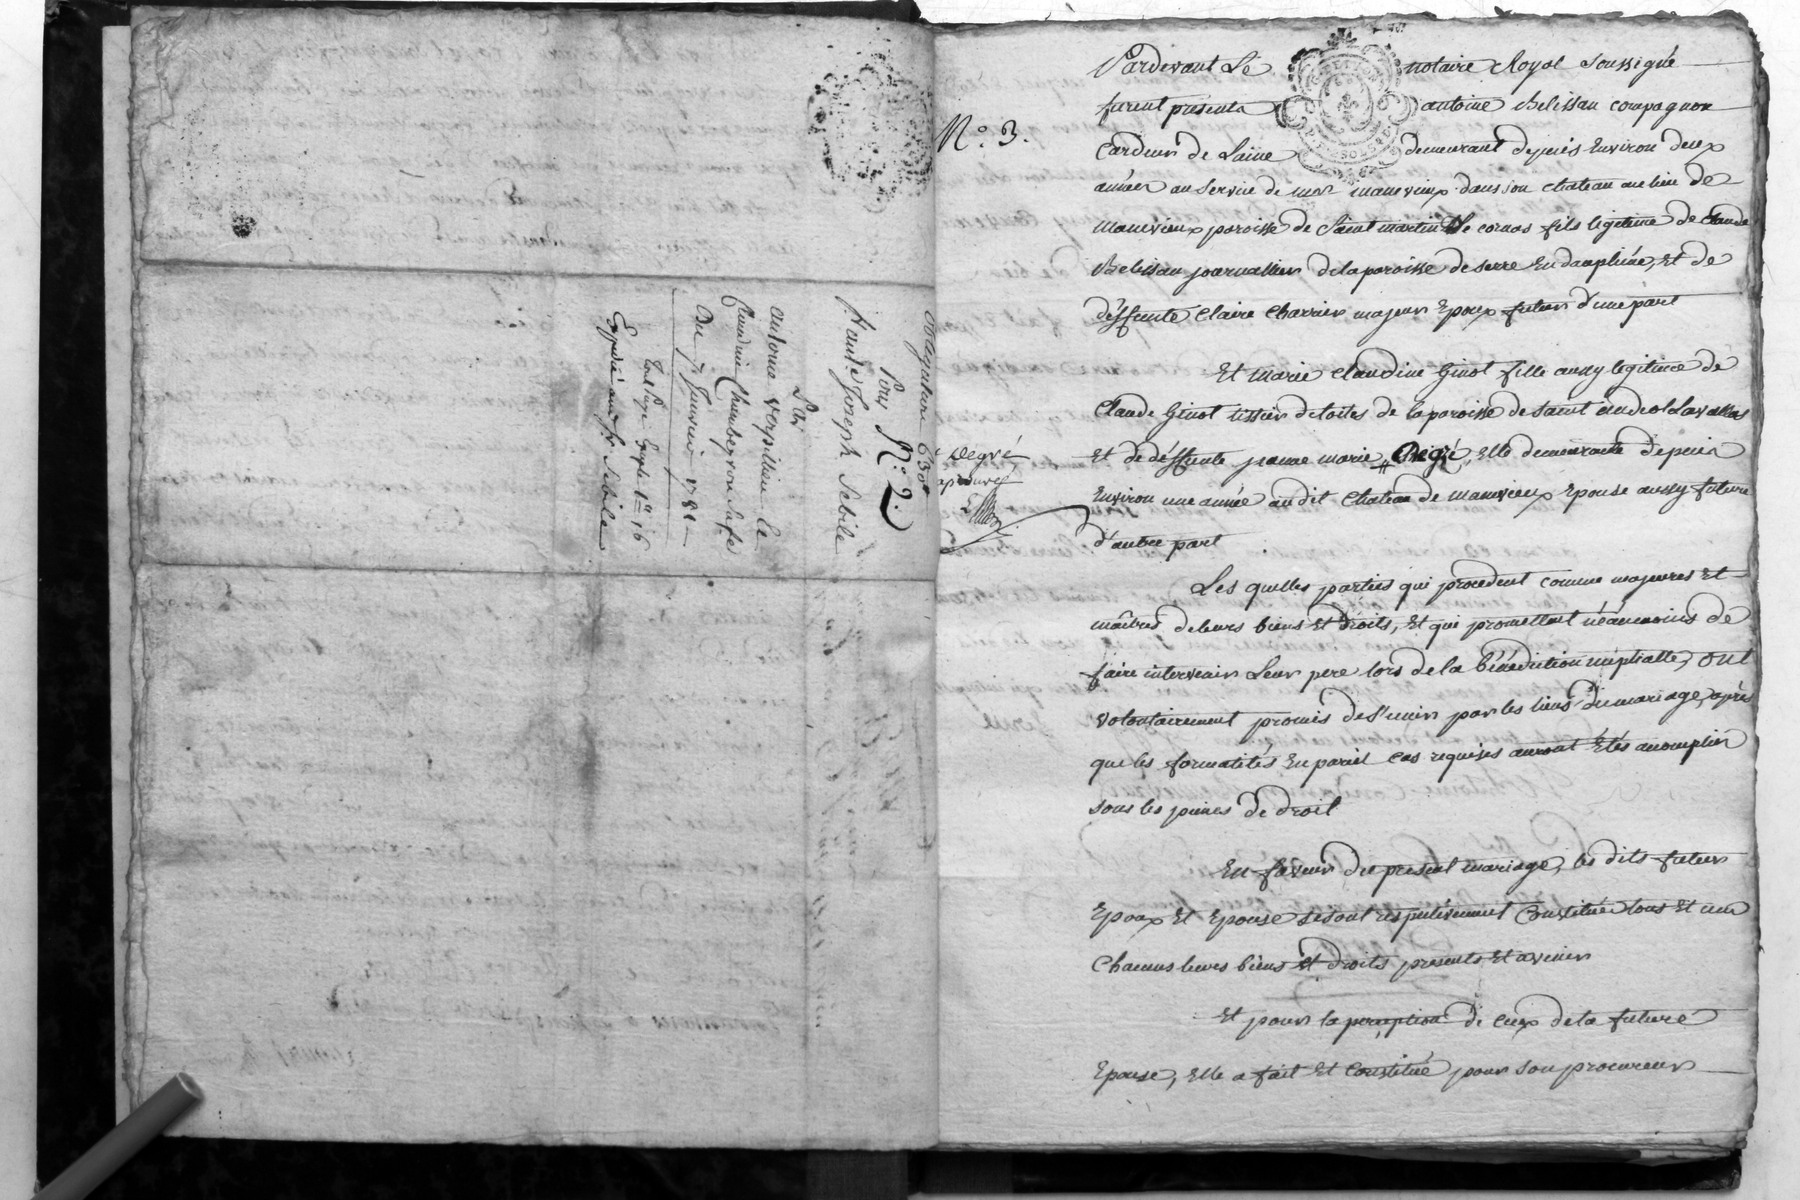 obligation 630#
Pour N.° 2.
h. ante Joseph Sebile
Par
antoine vorpillieu le
Claudine Chambeyron sa fe
Du 7 Janvier 1781
Expedié audit Sr. Sebile
N.° 3.
Pardevant Le notaire Royal Soussigné
furent presents antoine Belissau compagnon
Cardeur de Laine demeurant depuis Environ deux
années au service de mr manevieux dans son chateau au lieu de
manevieux paroisse de Saint martin De cornas fils legitime de Claude
Belissau journallier de la paroisse de serre En dauphiné, Et de
déffunte Claire Charrier majeur Epoux futur d'une part
Et marie Claudine Ginot fille aussy legitime de
Claude Ginot tissier de toiles de la paroisse de saint andeol Lavallas
Et de déffunte jeanne marie Degré, Elle demeurante depuis
Degré
aprouvé
Environ une année au dit Chateau de manevieux Epouse aussy future
d'autre part
Les quelles parties qui procedent comme majeures Et
maîtres de leurs biens Et droits, Et qui promettent néanmoins de
faire intervenir Leur pere lors de la bénédiction nuptialle, ont
volontairement promis de s'unir par les liens du mariage, après
que les formalités En pareil cas requises auront Etés accomplies
sous les peines de droit
En faveur du present mariage, les dits futurs
Epoux Et Epouse se sont respectivement Constitués tous Et un
Chacuns leurs biens Et droits presents Et avenir
Et pour la perception de ceux de la future
Epouse, Elle a fait Et Constitué pour son procureur